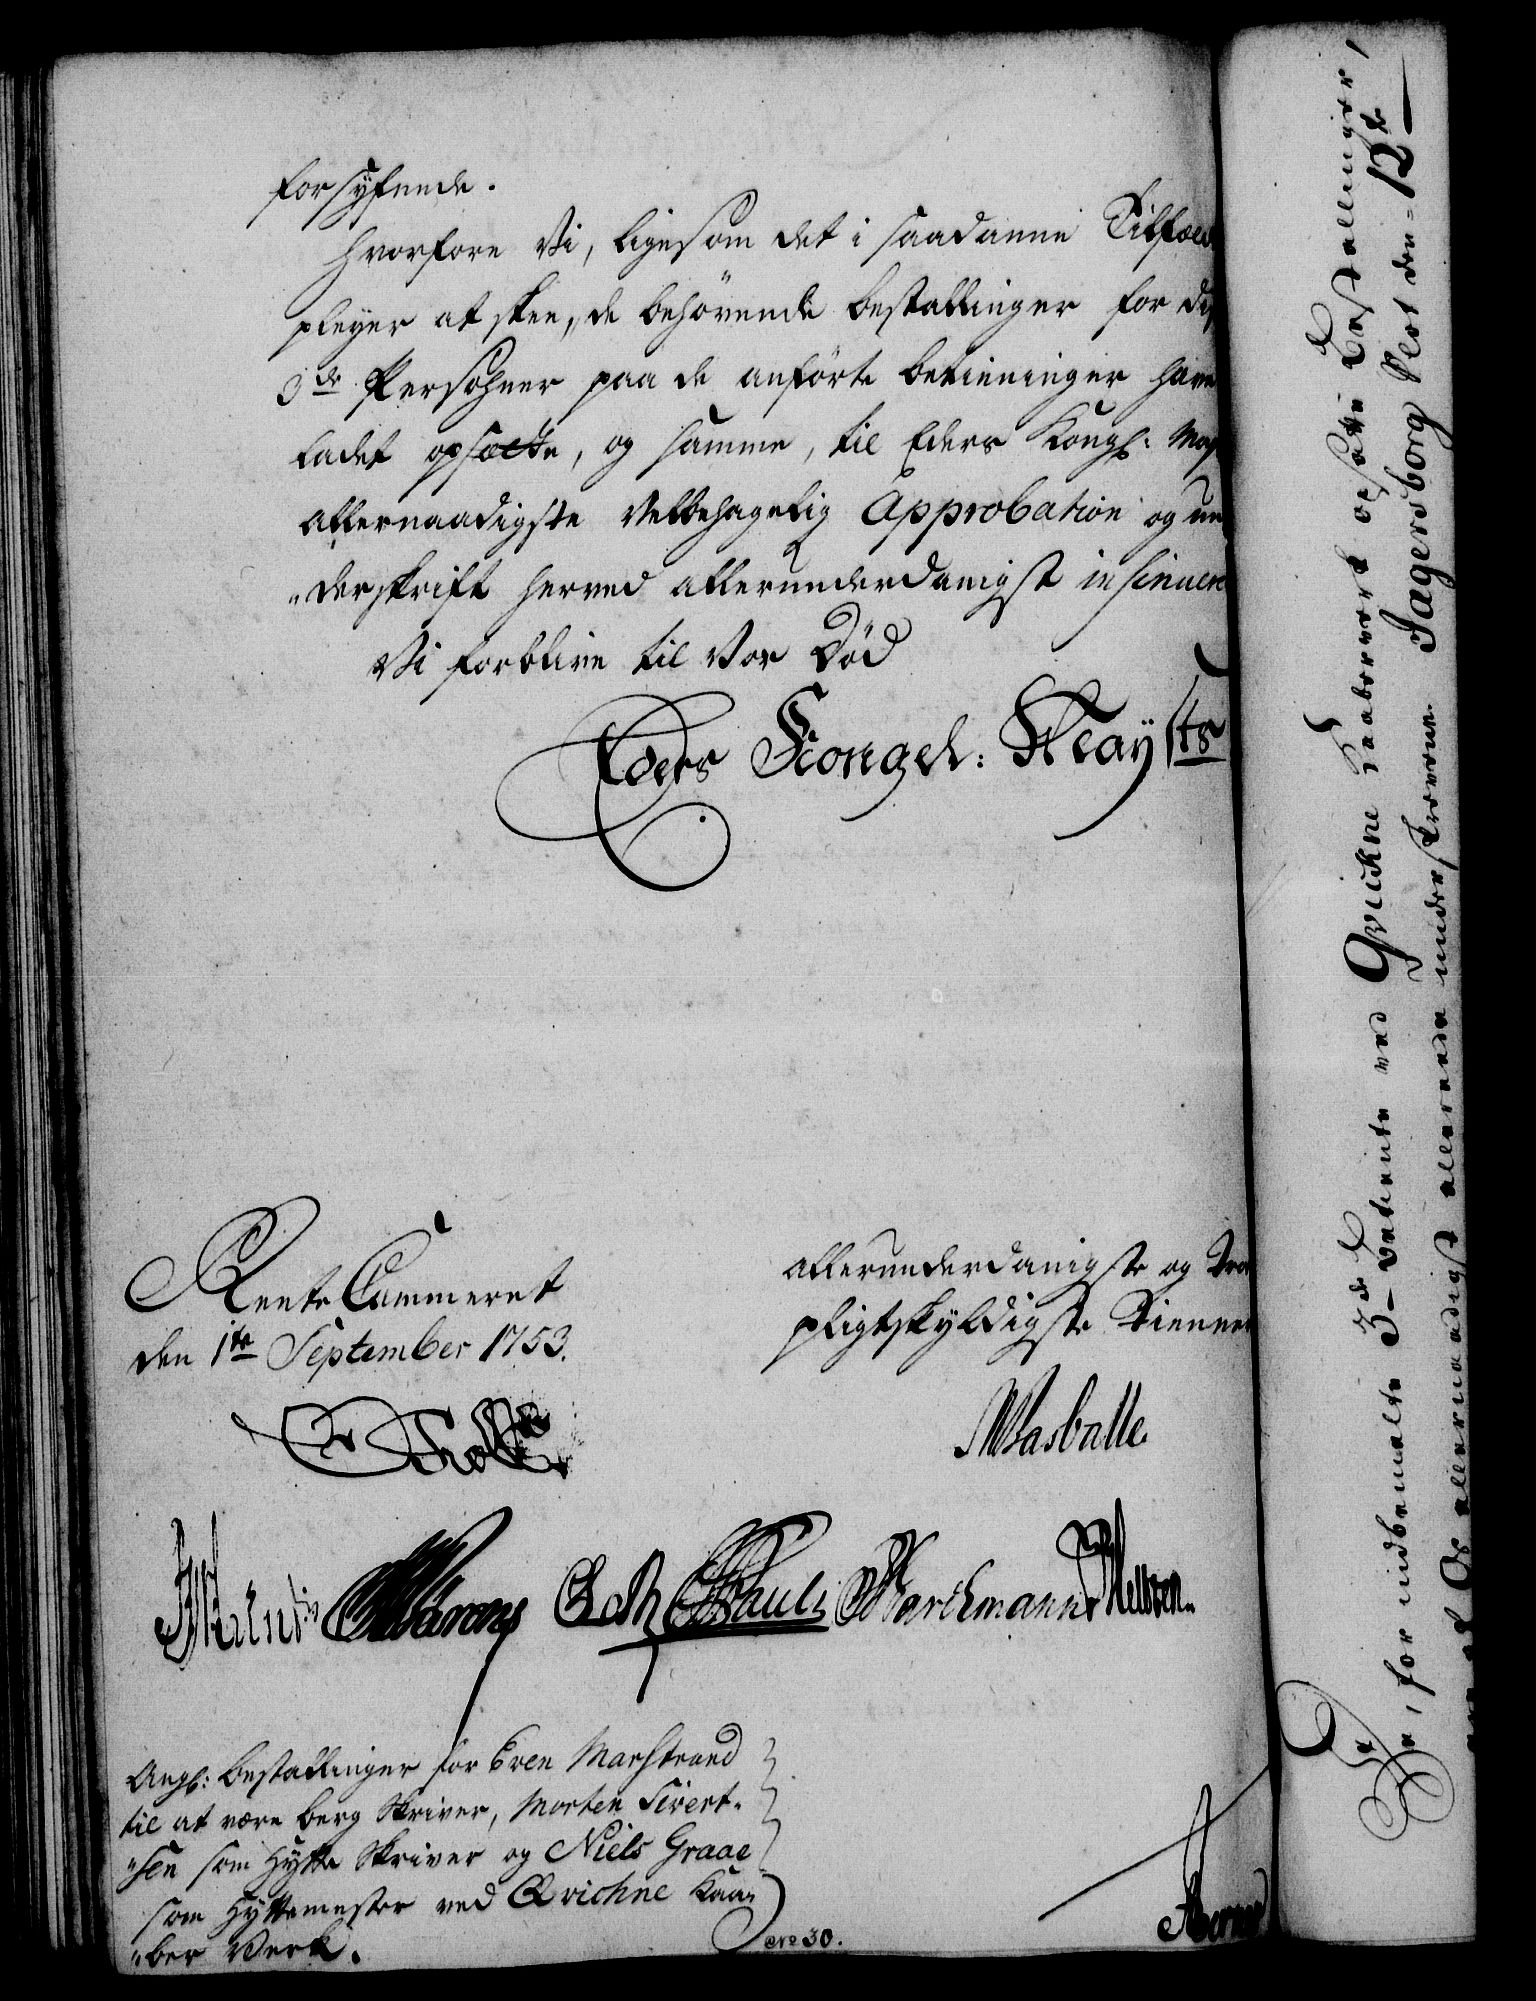 forsÿfnede.
Hvorfore Vi, ligesom det i saadanne Tilfæld
pleyer at skee, de behövende bestallinger for di
3de Persohner paa de anförte betieninger have
ladet opsætte, og samme, til Eders Kongl: May
allernaadigste Velbehagelig Approbation og un
"derskrift herved allerunderdanigst insinuere
Vi forblive til Vor Död
Eders Kongel: Mayts
Rente Cammeret
den 1te September 1753.
allerunderdanigste og Troe
pligtskyldigste Tienere
Holst
Wasballe
Marcus
Pauli
Barckmann
Nelleren
Angl: bestallinger for Even Marstrand
til at være berg Skriver, Morten Sivert-
"sen som Hytte Skriver og Niels Graae
som Hyttemester ved Qvichne Kaa-
"ber Verk.
No 30.
for indbemelte 3de Betiente ved Qvickne Kaaberverk opsatte Bestallinger,
allernaadigst allerede underskrevne. Jagersborg Slot den 12te